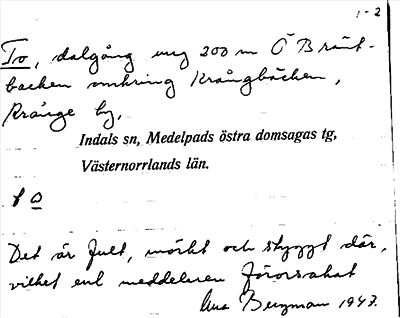 1-2
To, dalgång ung 200 m Ö Bränt-
backen omkring Krångbäcken,
Krånge by,
Indals sn, Medelpads östra domsagas tg,
Västernorrlands län.
Det är fult, mörkt och skyggt där,
vilket enl meddelaren förorsakat
Bergman 1947.